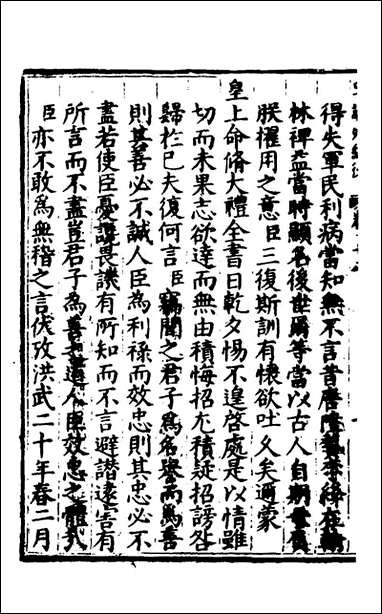 得失軍民利病當知無不言昔唐陸贄李絳在翰
林裨益當時顯名後世爾等當以古人自期毋負
朕擢用之意臣三復斯訓有懷欲吐久矣邇蒙
皇上命脩大禮全書日乾夕惕不遑啓處是以情雖
切而未果志欲達而無由積悔招尤積疑招謗咎
歸於已夫復何言臣竊聞之君子為名譽而為善
則其善必不誠人臣為利祿而效忠則其忠必不
盡若使臣憂讒畏譏有所知而不言避譖遠害有
所言而不盡豈君子為善之道人臣效忠之體哉
臣亦不敢為無稽之言伏攷洪武二十年春二月